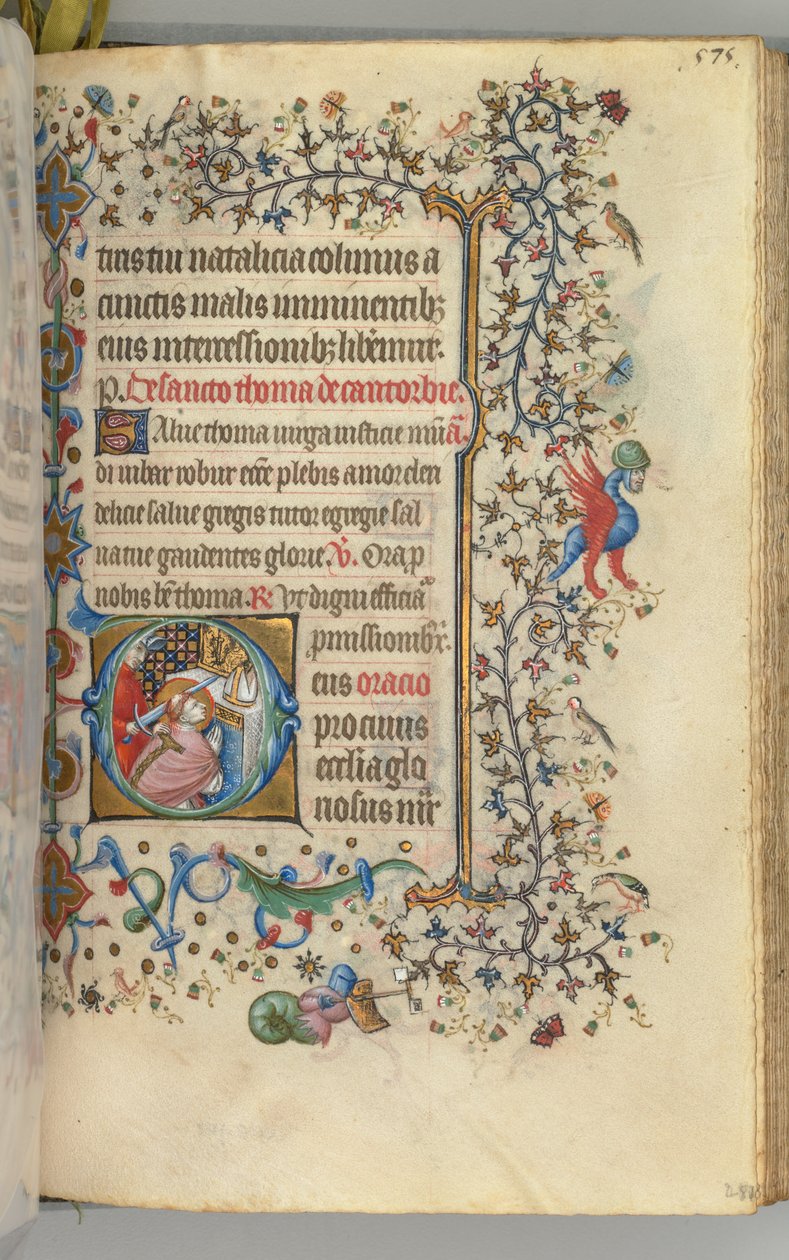 575.
tiris tui natalicia colimus a
cunctis malis imminentibꝫ
eius intercessionibꝫ liberemur.
p. De sancto thoma de cantorbie.
Salue thoma uirga iusticie mūa.
di iubar robur ecce plebis amor cleri
delicie salue gregis tutor egregie sal
ua tue gaudentes glorie. V̄. Ora p
nobis bē thoma. R̄ Vt digni efficiā
pmissionibꝫ xͥ.
eius oracio
pro cuius
ecclīa glo
riosus mīr